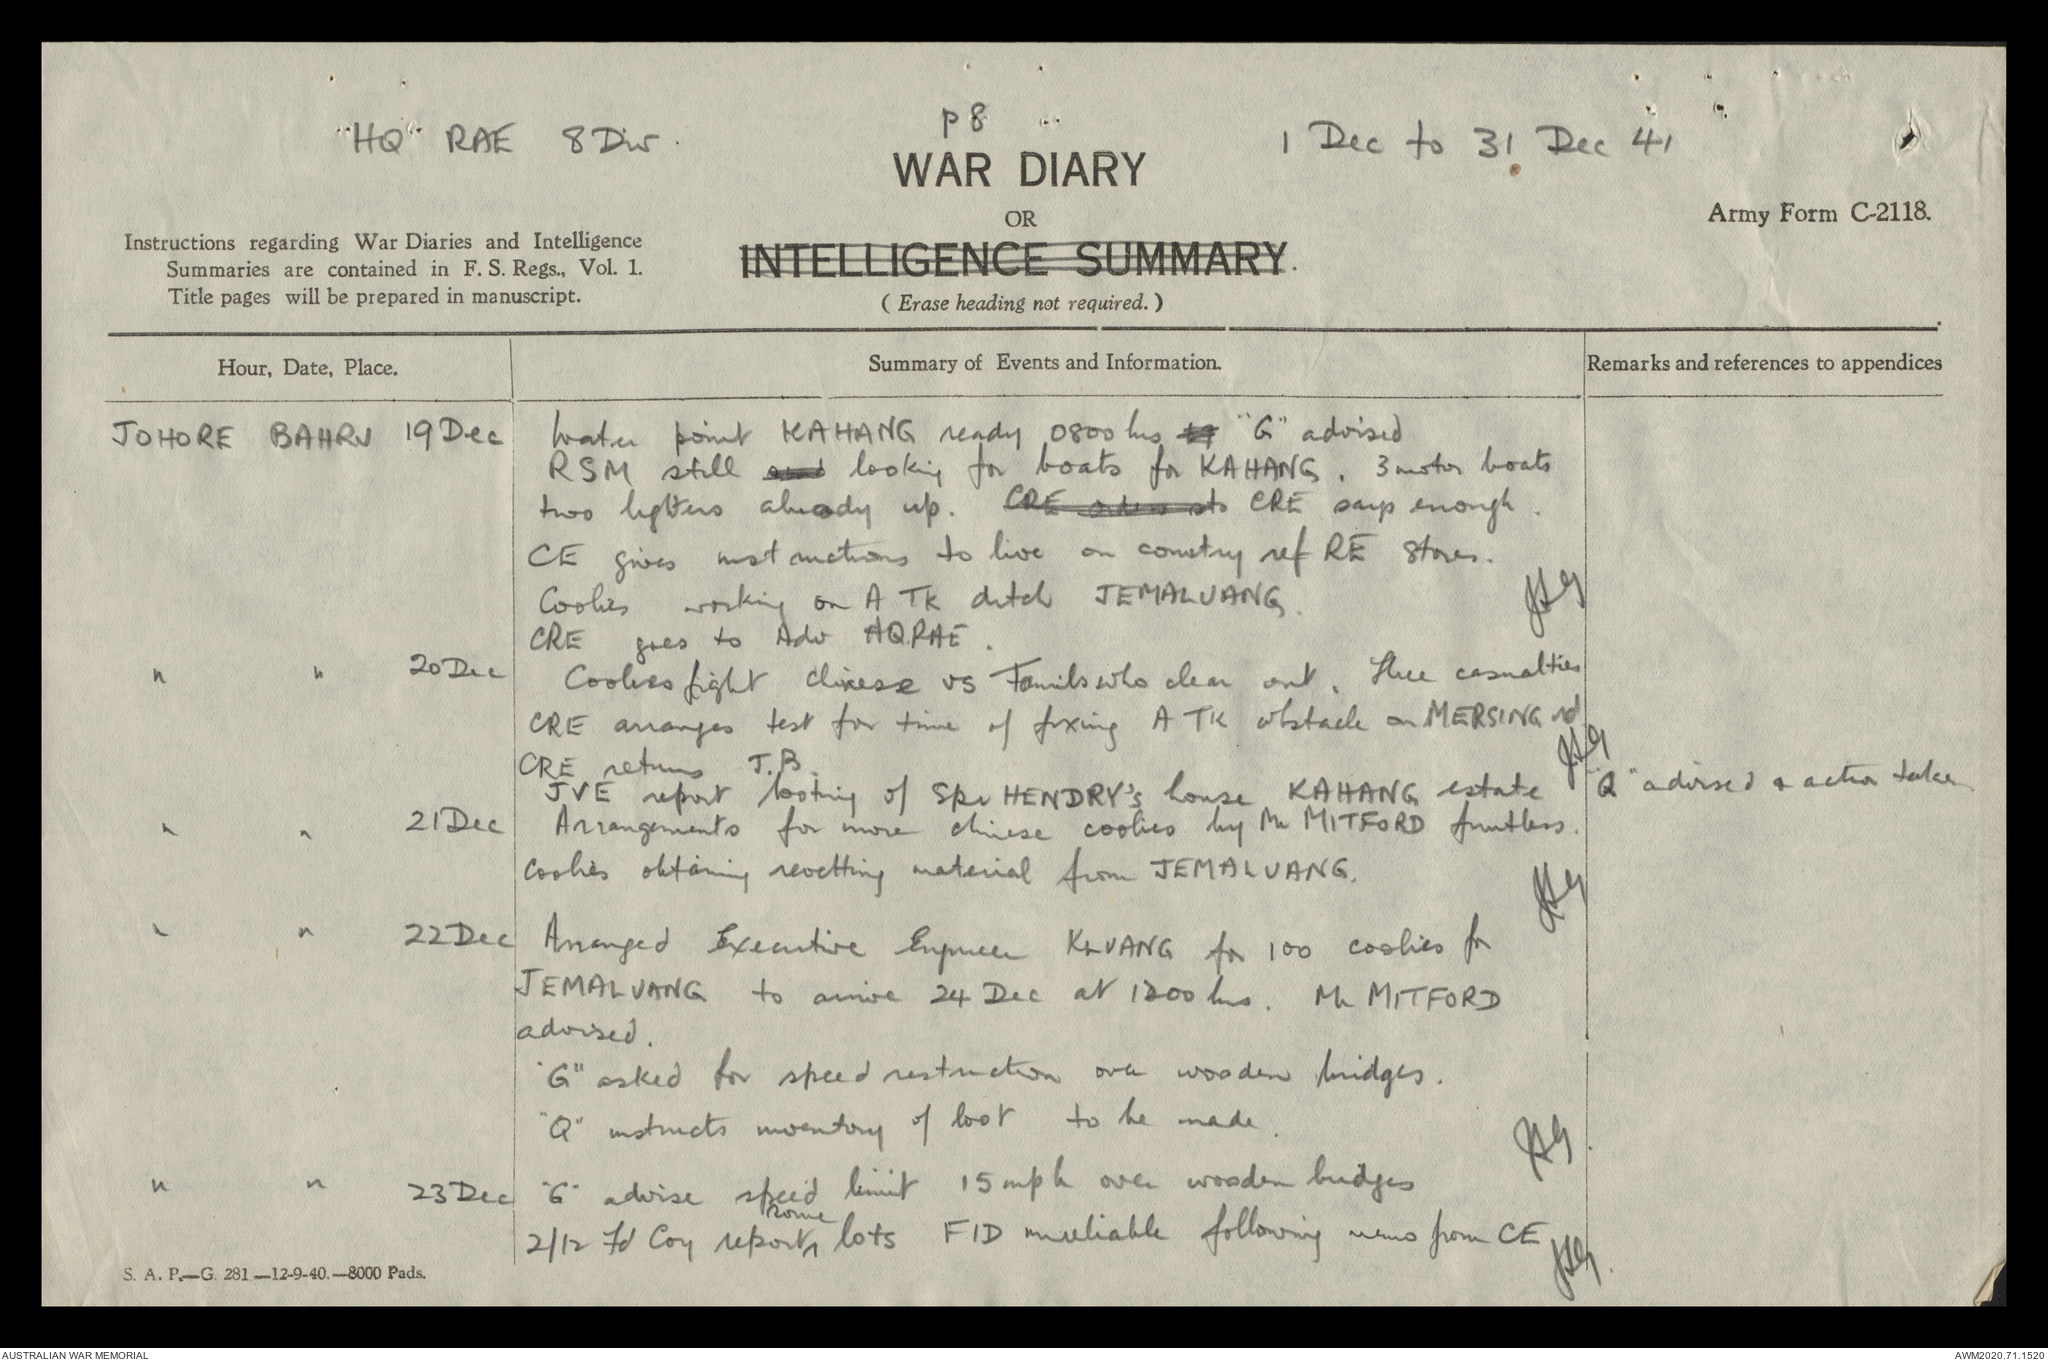 p 8
"HQ" RAE 8 Div.
1 Dec to 31 Dec 41
WAR DIARY
OR
INTELLIGENCE SUMMARY.
(Erase heading not required.)
Army Form C-2118.
Instructions regarding War Diaries and Intelligence
Summaries are contained in F. S. Regs., Vol. 1.
Title pages will be prepared in manuscript.
Hour, Date, Place.
Summary of Events and Information.
Remarks and references to appendices
JOHORE BAHRU 19 Dec Water point KAHANG ready 0800 hrs "G" advised
RSM still looking for boats for KAHANG. 3 motor boats
two lighters already up. CRE orders CRE says enough.
CE gives instructions to live on country ref RE stores.
Coolies working on A TK ditch JEMALUANG. JHG
CRE goes to Adv HQ.RAE.
" " 20 Dec Coolies fight chinese vs Tamils who clear out. Three casualties
CRE arranges test for time of fixing A TK obstacle on MERSING rd
CRE returns J.B. JHG
JVE report looting of Spr HENDRY's house KAHANG estate "Q" advised & action taken
" " 21 Dec Arrangements for more chinese coolies by Mr MITFORD fruitless.
Coolies obtaining revetting material from JEMALUANG. JHG
" " 22 Dec Arranged Executive Engineer KLUANG for 100 coolies for
JEMALUANG to arrive 24 Dec at 1200 hrs. Mr MITFORD
advised.
"G" asked for speed restruction over wooden bridges.
"Q" instructs inventory of loot to be made. JHG.
" " 23 Dec "G" advise speed limit 15 mph over wooden bridges
2/12 Fd Coy reports some lots FID unreliable following memo from CE JHG.
S. A. P.—G. 281—12-9-40.—8000 Pads.
AUSTRALIAN WAR MEMORIAL
AWM2020.71.1520